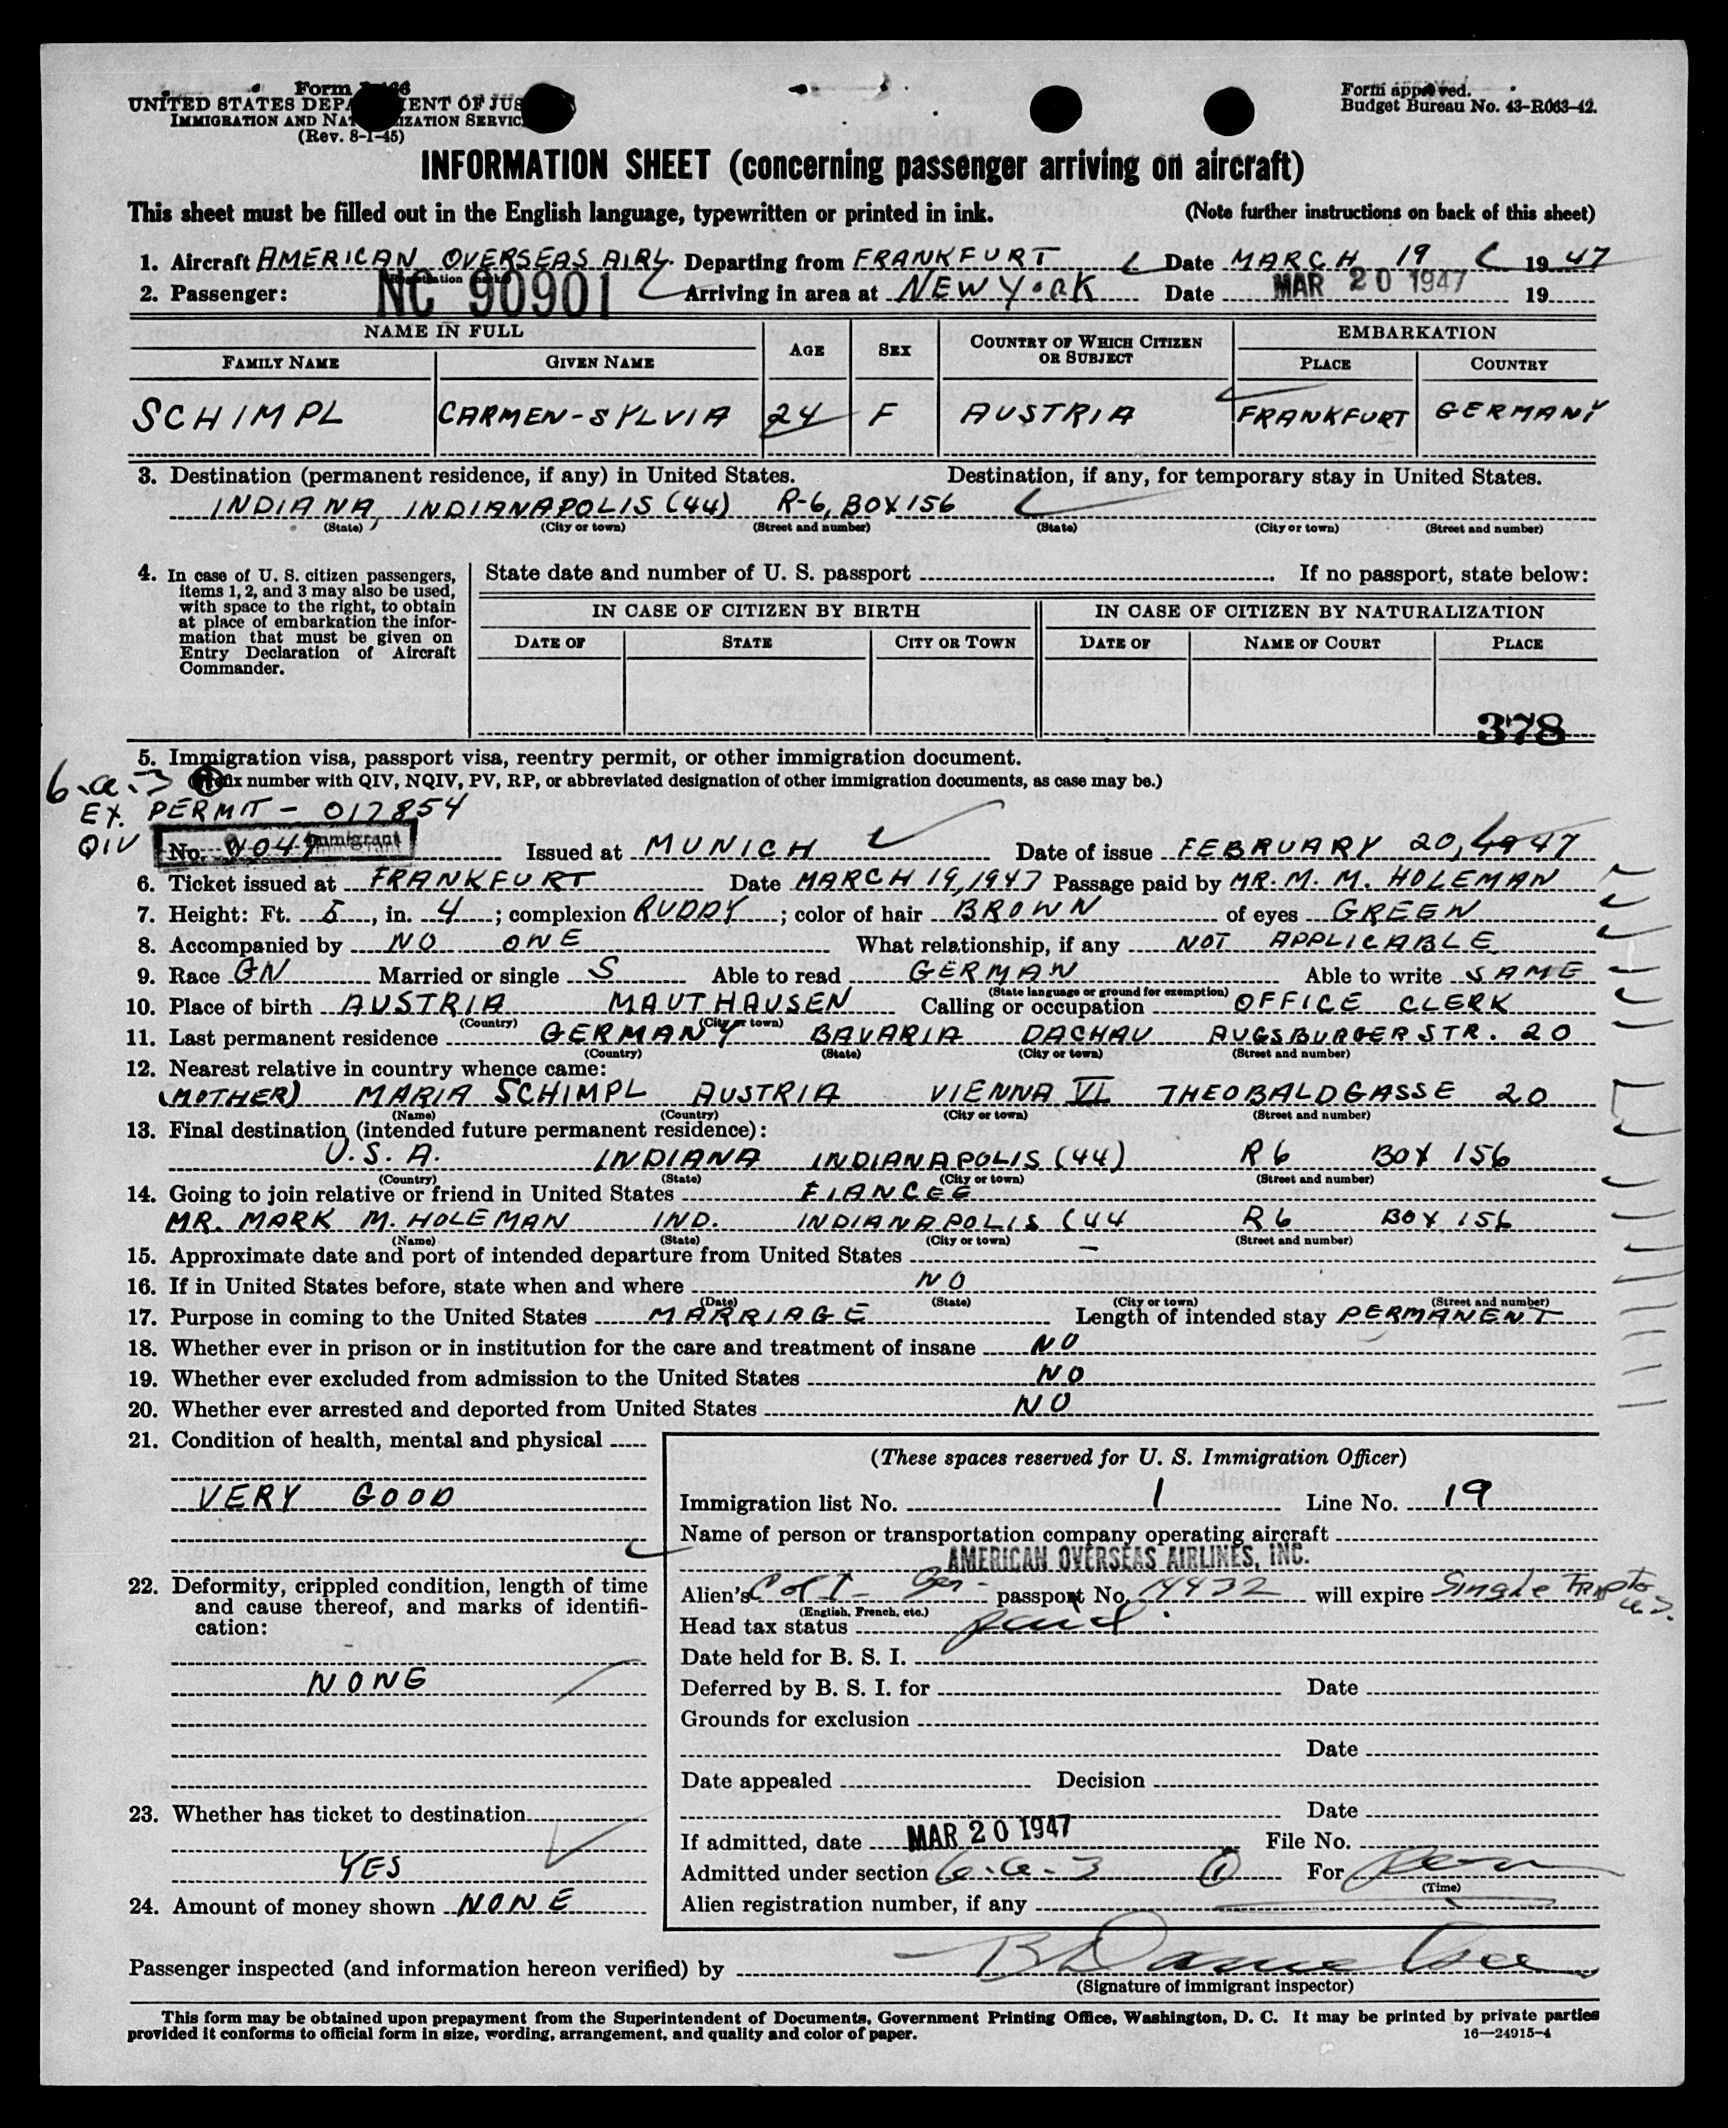 Form
UNITED STATES DEPARTMENT OF JUS
IMMIGRATION AND NATURALIZATION SERVICE
(Rev. 8-1-45)
Form approved.
Budget Bureau No. 43-R063-42.
INFORMATION SHEET (concerning passenger arriving on aircraft)
This sheet must be filled out in the English language, typewritten or printed in ink. (Note further instructions on back of this sheet)
1. Aircraft AMERICAN OVERSEAS AIRL. Departing from FRANKFURT Date MARCH 19 1947
NC 90901
2. Passenger: Arriving in area at NEW YORK Date MAR 20 1947 19
NAME IN FULL AGE SEX COUNTRY OF WHICH CITIZEN OR SUBJECT EMBARKATION
FAMILY NAME GIVEN NAME PLACE COUNTRY
SCHIMPL CARMEN-SYLVIA 24 F AUSTRIA FRANKFURT GERMANY
3. Destination (permanent residence, if any) in United States. Destination, if any, for temporary stay in United States.
INDIANA, INDIANAPOLIS (44) R-6, BOX 156
(State) (City or town) (Street and number) (State) (City or town) (Street and number)
4. In case of U. S. citizen passengers, items 1, 2, and 3 may also be used, with space to the right, to obtain at place of embarkation the information that must be given on Entry Declaration of Aircraft Commander.
State date and number of U. S. passport If no passport, state below:
IN CASE OF CITIZEN BY BIRTH IN CASE OF CITIZEN BY NATURALIZATION
DATE OF STATE CITY OR TOWN DATE OF NAME OF COURT PLACE
378
5. Immigration visa, passport visa, reentry permit, or other immigration document.
6-a-3 (Prefix number with QIV, NQIV, PV, RP, or abbreviated designation of other immigration documents, as case may be.)
EX. PERMIT - 017854
QIV No. Immigrant Issued at MUNICH Date of issue FEBRUARY 20, 1947
6. Ticket issued at FRANKFURT Date MARCH 19, 1947 Passage paid by MR. M. M. HOLEMAN
7. Height: Ft. 5, in. 4; complexion RUDDY; color of hair BROWN of eyes GREEN
8. Accompanied by NO ONE What relationship, if any NOT APPLICABLE
9. Race GN Married or single S Able to read GERMAN Able to write SAME
(State language or ground for exemption)
10. Place of birth AUSTRIA MAUTHAUSEN Calling or occupation OFFICE CLERK
(Country) (City or town)
11. Last permanent residence GERMANY BAVARIA DACHAU AUGSBURGERSTR. 20
(Country) (State) (City or town) (Street and number)
12. Nearest relative in country whence came:
(MOTHER) MARIA SCHIMPL AUSTRIA VIENNA VI THEOBALDGASSE 20
(Name) (Country) (City or town) (Street and number)
13. Final destination (intended future permanent residence):
U.S.A. INDIANA INDIANAPOLIS (44) R6 BOX 156
(Country) (State) (City or town) (Street and number)
14. Going to join relative or friend in United States FIANCEE
MR. MARK M. HOLEMAN IND. INDIANAPOLIS (44 R6 BOX 156
(Name) (State) (City or town) (Street and number)
15. Approximate date and port of intended departure from United States -
16. If in United States before, state when and where NO
(Date) (State) (City or town) (Street and number)
17. Purpose in coming to the United States MARRIAGE Length of intended stay PERMANENT
18. Whether ever in prison or in institution for the care and treatment of insane NO
19. Whether ever excluded from admission to the United States NO
20. Whether ever arrested and deported from United States NO
21. Condition of health, mental and physical
VERY GOOD
22. Deformity, crippled condition, length of time and cause thereof, and marks of identification:
NONE
23. Whether has ticket to destination
YES
24. Amount of money shown NONE
(These spaces reserved for U. S. Immigration Officer)
Immigration list No. 1 Line No. 19
Name of person or transportation company operating aircraft
AMERICAN OVERSEAS AIRLINES, INC.
Alien's passport No. will expire Single Trip to U.S.
(English, French, etc.)
Head tax status paid.
Date held for B. S. I.
Deferred by B. S. I. for Date
Grounds for exclusion
Date
Date appealed Decision
Date
If admitted, date MAR 20 1947 File No.
Admitted under section 6-a-3 (1) For Perm
(Time)
Alien registration number, if any
Passenger inspected (and information hereon verified) by
(Signature of immigrant inspector)
This form may be obtained upon prepayment from the Superintendent of Documents, Government Printing Office, Washington, D. C. It may be printed by private parties
provided it conforms to official form in size, wording, arrangement, and quality and color of paper. 16—24915-4